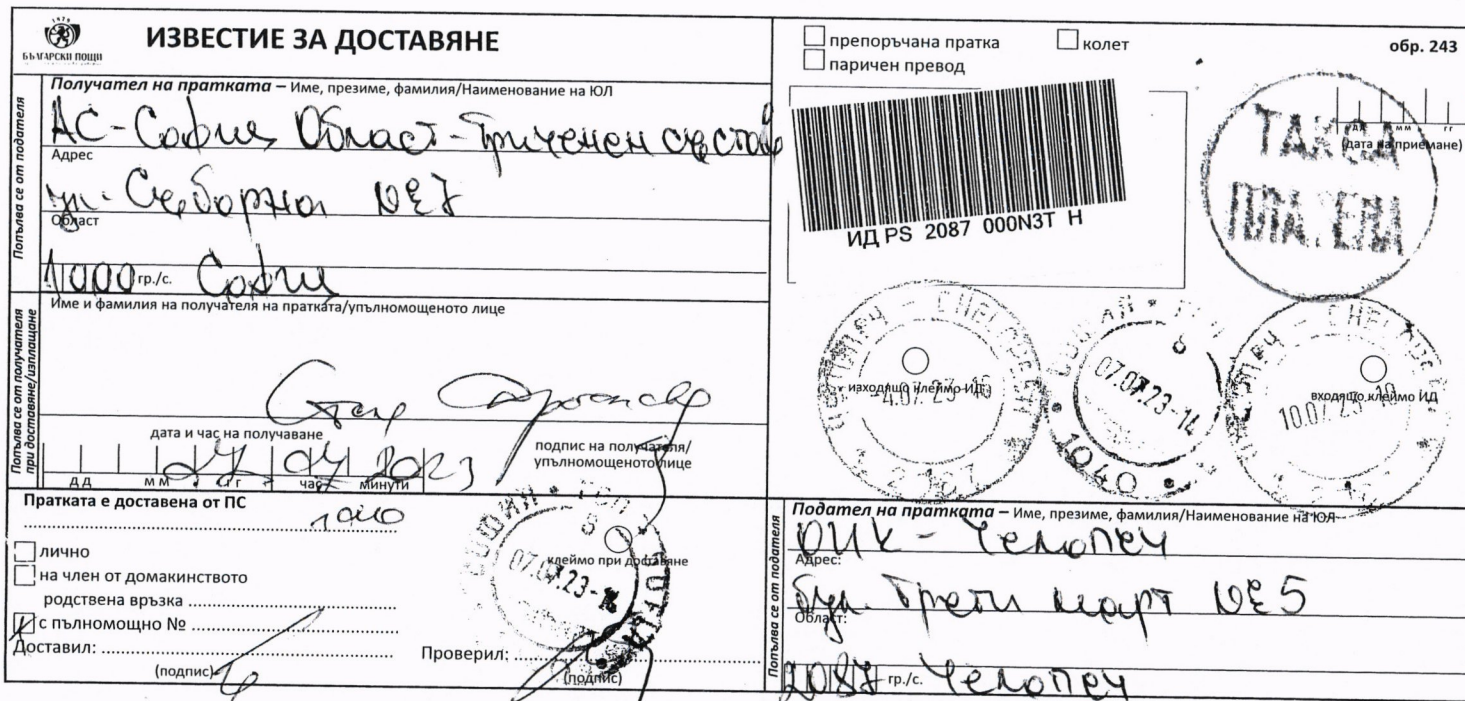 1879
БЪЛГАРСКИ ПОЩИ
ИЗВЕСТИЕ ЗА ДОСТАВЯНЕ
Попълва се от подателя
Получател на пратката – Име, презиме, фамилия/Наименование на ЮЛ
АС-София Област-Тричленен състав
Адрес
ул. Съборна №7
Област
1000 гр./с. София
Попълва се от получателя при доставяне/изплащане
Име и фамилия на получателя на пратката/упълномощеното лице
дата и час на получаване
подпис на получателя/
упълномощеното лице
07 2023
дд мм гг час минути
Пратката е доставена от ПС
1040
лично
на член от домакинството
родствена връзка
с пълномощно №
Доставил:
(подпис)
клеймо при доставяне
07.07.23-14
Проверил:
(подпис)
препоръчана пратка
колет
обр. 243
паричен превод
ИД PS 2087 000N3T H
ТАКСА
ПЛАТЕНА
дд мм гг
(дата на приемане)
изходящо клеймо ИД
-4.07.23-16
07.07.23-14
1040
входящо клеймо ИД
10.07.23-10
Попълва се от подателя
Подател на пратката – Име, презиме, фамилия/Наименование на ЮЛ
ОИК - Челопеч
Адрес:
бул. Трети март №5
Област:
2087 гр./с. Челопеч